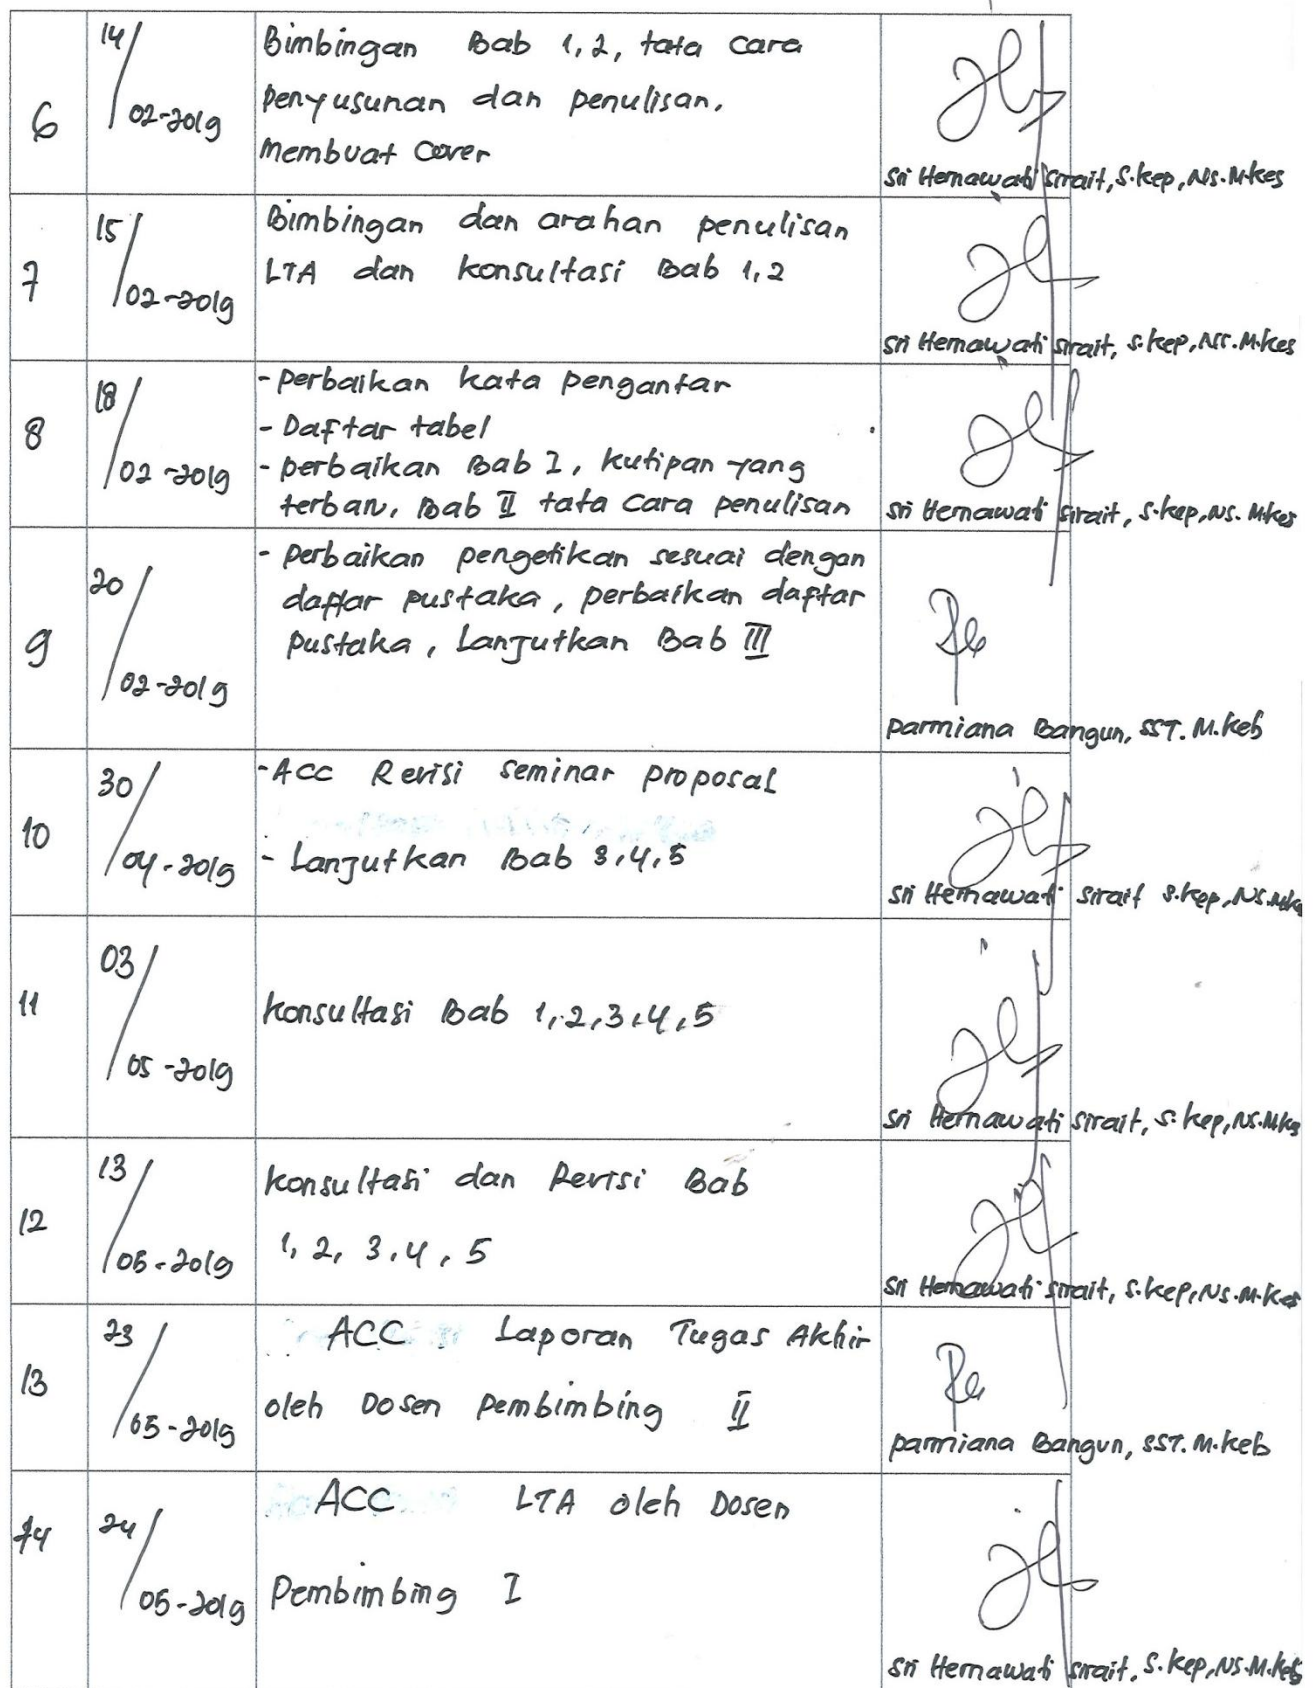 6
14/02-2019
Bimbingan Bab 1,2, tata cara
penyusunan dan penulisan.
membuat cover
Sri Hernawati Sirait, S.kep, Ns. M.kes
7
15/02-2019
Bimbingan dan arahan penulisan
LTA dan konsultasi Bab 1,2
Sri Hernawati Sirait, S.kep, Ns. M.kes
8
18/02-2019
- perbaikan kata pengantar
- Daftar tabel
- perbaikan Bab I, kutipan yang
terbaru, Bab II tata cara penulisan
Sri Hernawati Sirait, S.kep, Ns. M.kes
9
20/02-2019
- perbaikan pengetikan sesuai dengan
daftar pustaka, perbaikan daftar
pustaka, Lanjutkan Bab III
Parmiana Bangun, SST. M.Keb
10
30/04-2019
- ACC Revisi seminar proposal
- Lanjutkan Bab 3,4,5
Sri Hernawati Sirait S.kep, Ns. Mkes
11
03/05-2019
konsultasi Bab 1,2,3,4,5
Sri Hernawati Sirait, S.kep, Ns. Mkes
12
13/05-2019
konsultasi dan Revisi Bab
1, 2, 3, 4, 5
Sri Hernawati Sirait, S.kep, Ns. M.kes
13
23/05-2019
ACC Laporan Tugas Akhir
oleh Dosen pembimbing II
parmiana Bangun, SST. M.keb
14
24/05-2019
ACC LTA oleh Dosen
Pembimbing I
Sri Hernawati Sirait, S.kep, Ns. M.kes